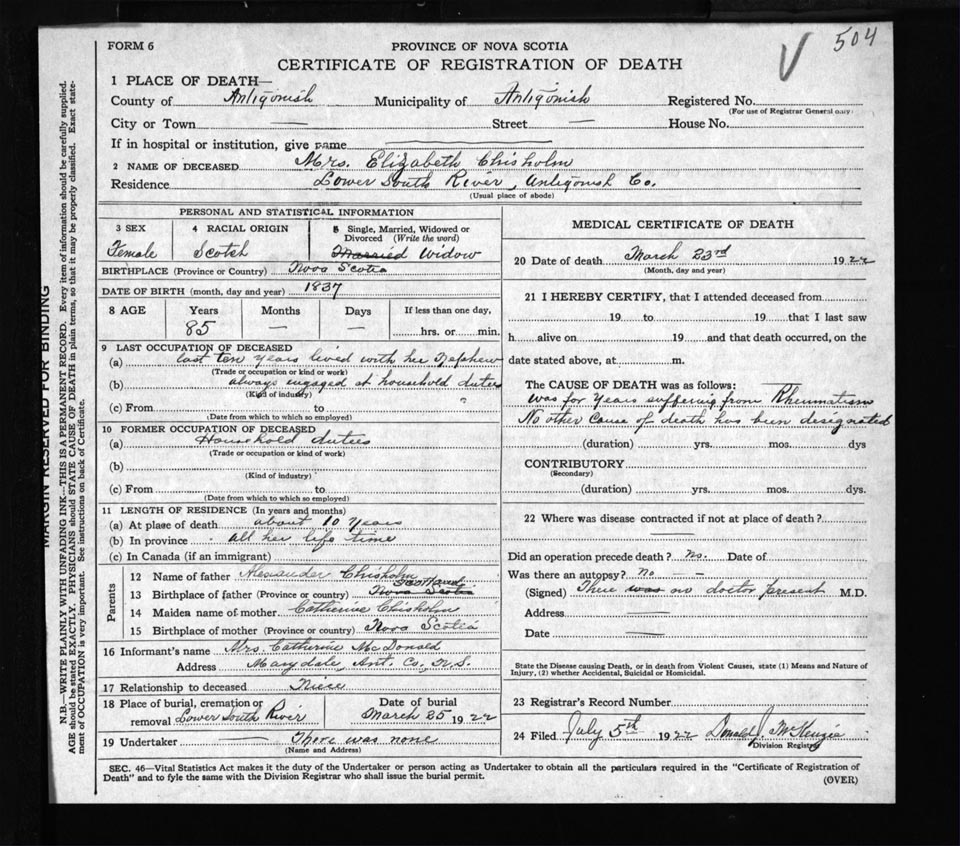 FORM 6
PROVINCE OF NOVA SCOTIA
V 504
CERTIFICATE OF REGISTRATION OF DEATH
1 PLACE OF DEATH—
County of Antigonish Municipality of Antigonish Registered No.
(For use of Registrar General only)
City or Town — Street — House No.
If in hospital or institution, give name
2 NAME OF DECEASED Mrs. Elizabeth Chisholm
Residence Lower South River, Antigonish Co.
(Usual place of abode)
PERSONAL AND STATISTICAL INFORMATION
3 SEX 4 RACIAL ORIGIN 5 Single, Married, Widowed or Divorced (Write the word)
Female Scotch Married Widow
BIRTHPLACE (Province or Country) Nova Scotia
DATE OF BIRTH (month, day and year) 1837
8 AGE Years Months Days If less than one day,
85 — — hrs. or min.
9 LAST OCCUPATION OF DECEASED
(a) last ten years lived with her Nephew
(Trade or occupation or kind or work)
(b) always engaged at household duties
(Kind of industry)
(c) From to
(Date from which to which so employed)
10 FORMER OCCUPATION OF DECEASED
(a) Household duties
(Trade or occupation or kind of work)
(b)
(Kind of industry)
(c) From to
(Date from which to which so employed)
11 LENGTH OF RESIDENCE (In years and months)
(a) At place of death about 10 years
(b) In province all her life time
(c) In Canada (if an immigrant)
Parents
12 Name of father Alexander Chisholm
Scotland
13 Birthplace of father (Province or country) Nova Scotia
14 Maiden name of mother Catherine Chisholm
15 Birthplace of mother (Province or country) Nova Scotia
16 Informant's name Mrs. Catherine McDonald
Address Marydale, Ant. Co, N.S.
17 Relationship to deceased Niece
18 Place of burial, cremation or removal Lower South River
Date of burial March 25 1922
19 Undertaker — There was none
(Name and Address)
MEDICAL CERTIFICATE OF DEATH
20 Date of death March 23rd 1922
(Month, day and year)
21 I HEREBY CERTIFY, that I attended deceased from
19 to 19 that I last saw
h alive on 19 and that death occurred, on the
date stated above, at m.
The CAUSE OF DEATH was as follows:
Was for years suffering from Rheumatism
No other Cause of death has been designated
(duration) yrs. mos. dys
CONTRIBUTORY
(Secondary)
(duration) yrs. mos. dys.
22 Where was disease contracted if not at place of death?
Did an operation precede death? No. Date of
Was there an autopsy? No
(Signed) There was no doctor present M.D.
Address —
Date —
State the Disease causing Death, or in death from Violent Causes, state (1) Means and Nature of
Injury, (2) whether Accidental, Suicidal or Homicidal.
23 Registrar's Record Number
24 Filed July 5th 1922 Donald J. McKenzie
Division Registry
SEC. 46—Vital Statistics Act makes it the duty of the Undertaker or person acting as Undertaker to obtain all the particulars required in the "Certificate of Registration of
Death" and to fyle the same with the Division Registrar who shall issue the burial permit.
(OVER)
MARGIN RESERVED FOR BINDING
N.B.—WRITE PLAINLY WITH UNFADING INK—THIS IS A PERMANENT RECORD. Every item of information should be carefully supplied.
AGE should be stated EXACTLY. PHYSICIANS should STATE CAUSE OF DEATH in plain terms, so that it may be properly classified. Exact state-
ment of OCCUPATION is very important. See instructions on back of Certificate.